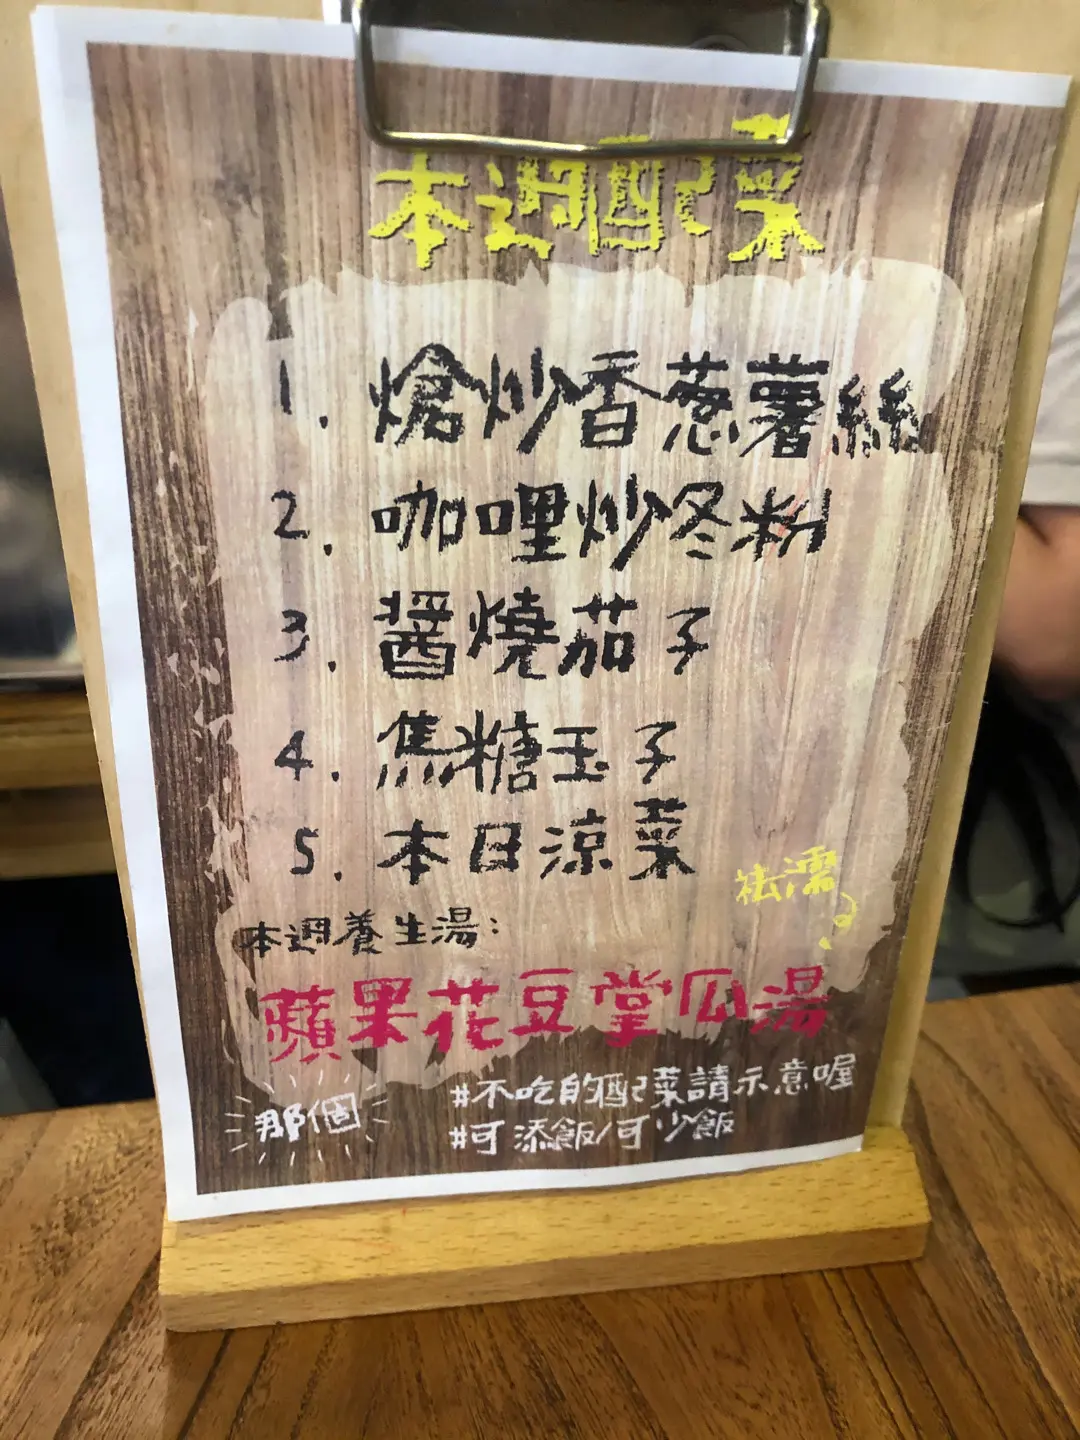 本週配菜
1. 熗炒香蔥薯絲
2. 咖哩炒冬粉
3. 醬燒茄子
4. 焦糖玉子
5. 本日涼菜
祛濕
本週養生湯:
蘋果花豆掌瓜湯
那個
#不吃的配菜請示意喔
#可添飯/可少飯